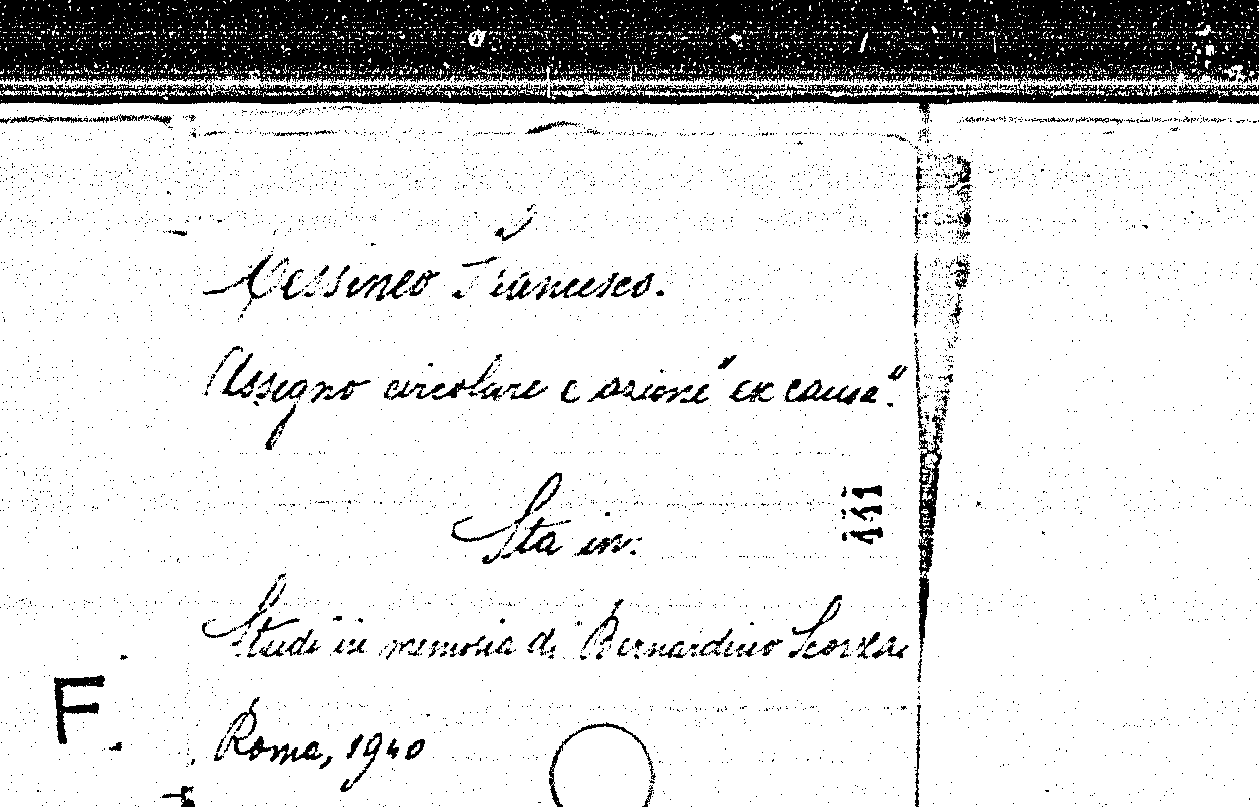 Messineo Francesco.
Assegno circolare e azione "ex causa".
Sta in:
Studi in memoria di Bernardino Scorza.
F.
Roma, 1940